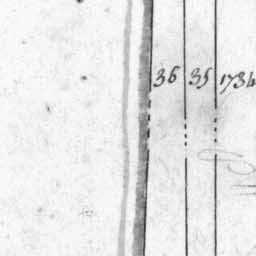 36 35 1734